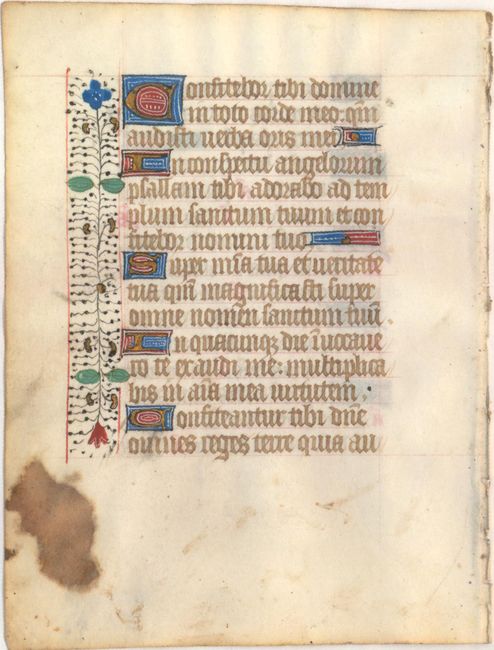 Confitebor tibi domine
in toto corde meo: qm̄
audisti verba oris mei
In conspectu angelorum
psallam tibi adorabo ad tem
plum sanctum tuum et con
fitebor nomini tuo
Super mīa tua et veritate
tua qm̄ magnificasti super
omne nomen sanctum tuū
In quacunq; die īvocave
ro te exaudi me: multiplica
bis in aīa mea virtutem,
Confiteantur tibi dn̄e
omnes reges terre quia au